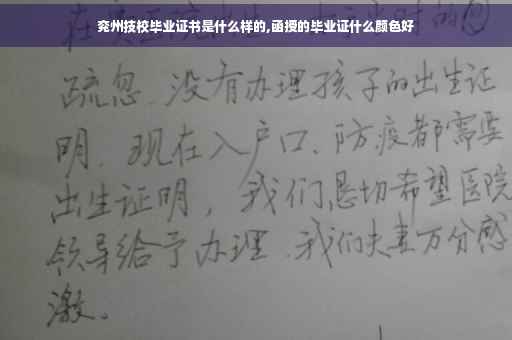 兖州技校毕业证书是什么样的,函授的毕业证什么颜色好
疏忽、没有办理孩子的出生证
明、现在入户口、防疫都需要
出生证明，我们恳切希望医院
领导给予办理、我们夫妻万分感
激。